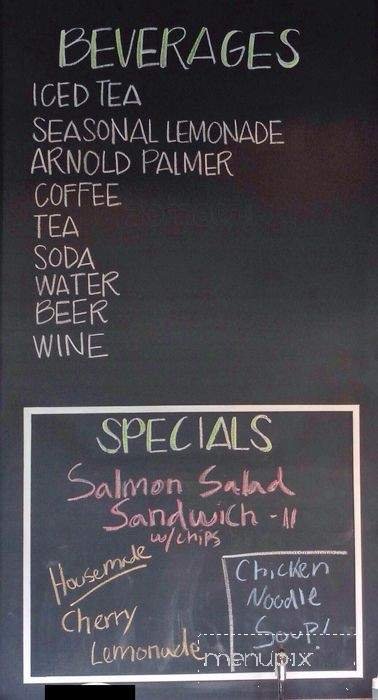 BEVERAGES
ICED TEA
SEASONAL LEMONADE
ARNOLD PALMER
COFFEE
TEA
SODA
WATER
BEER
WINE
SPECIALS
Salmon Salad
Sandwich - 11
w/chips
Housemade
Cherry
Lemonade
Chicken
Noodle
Soup!
menupix